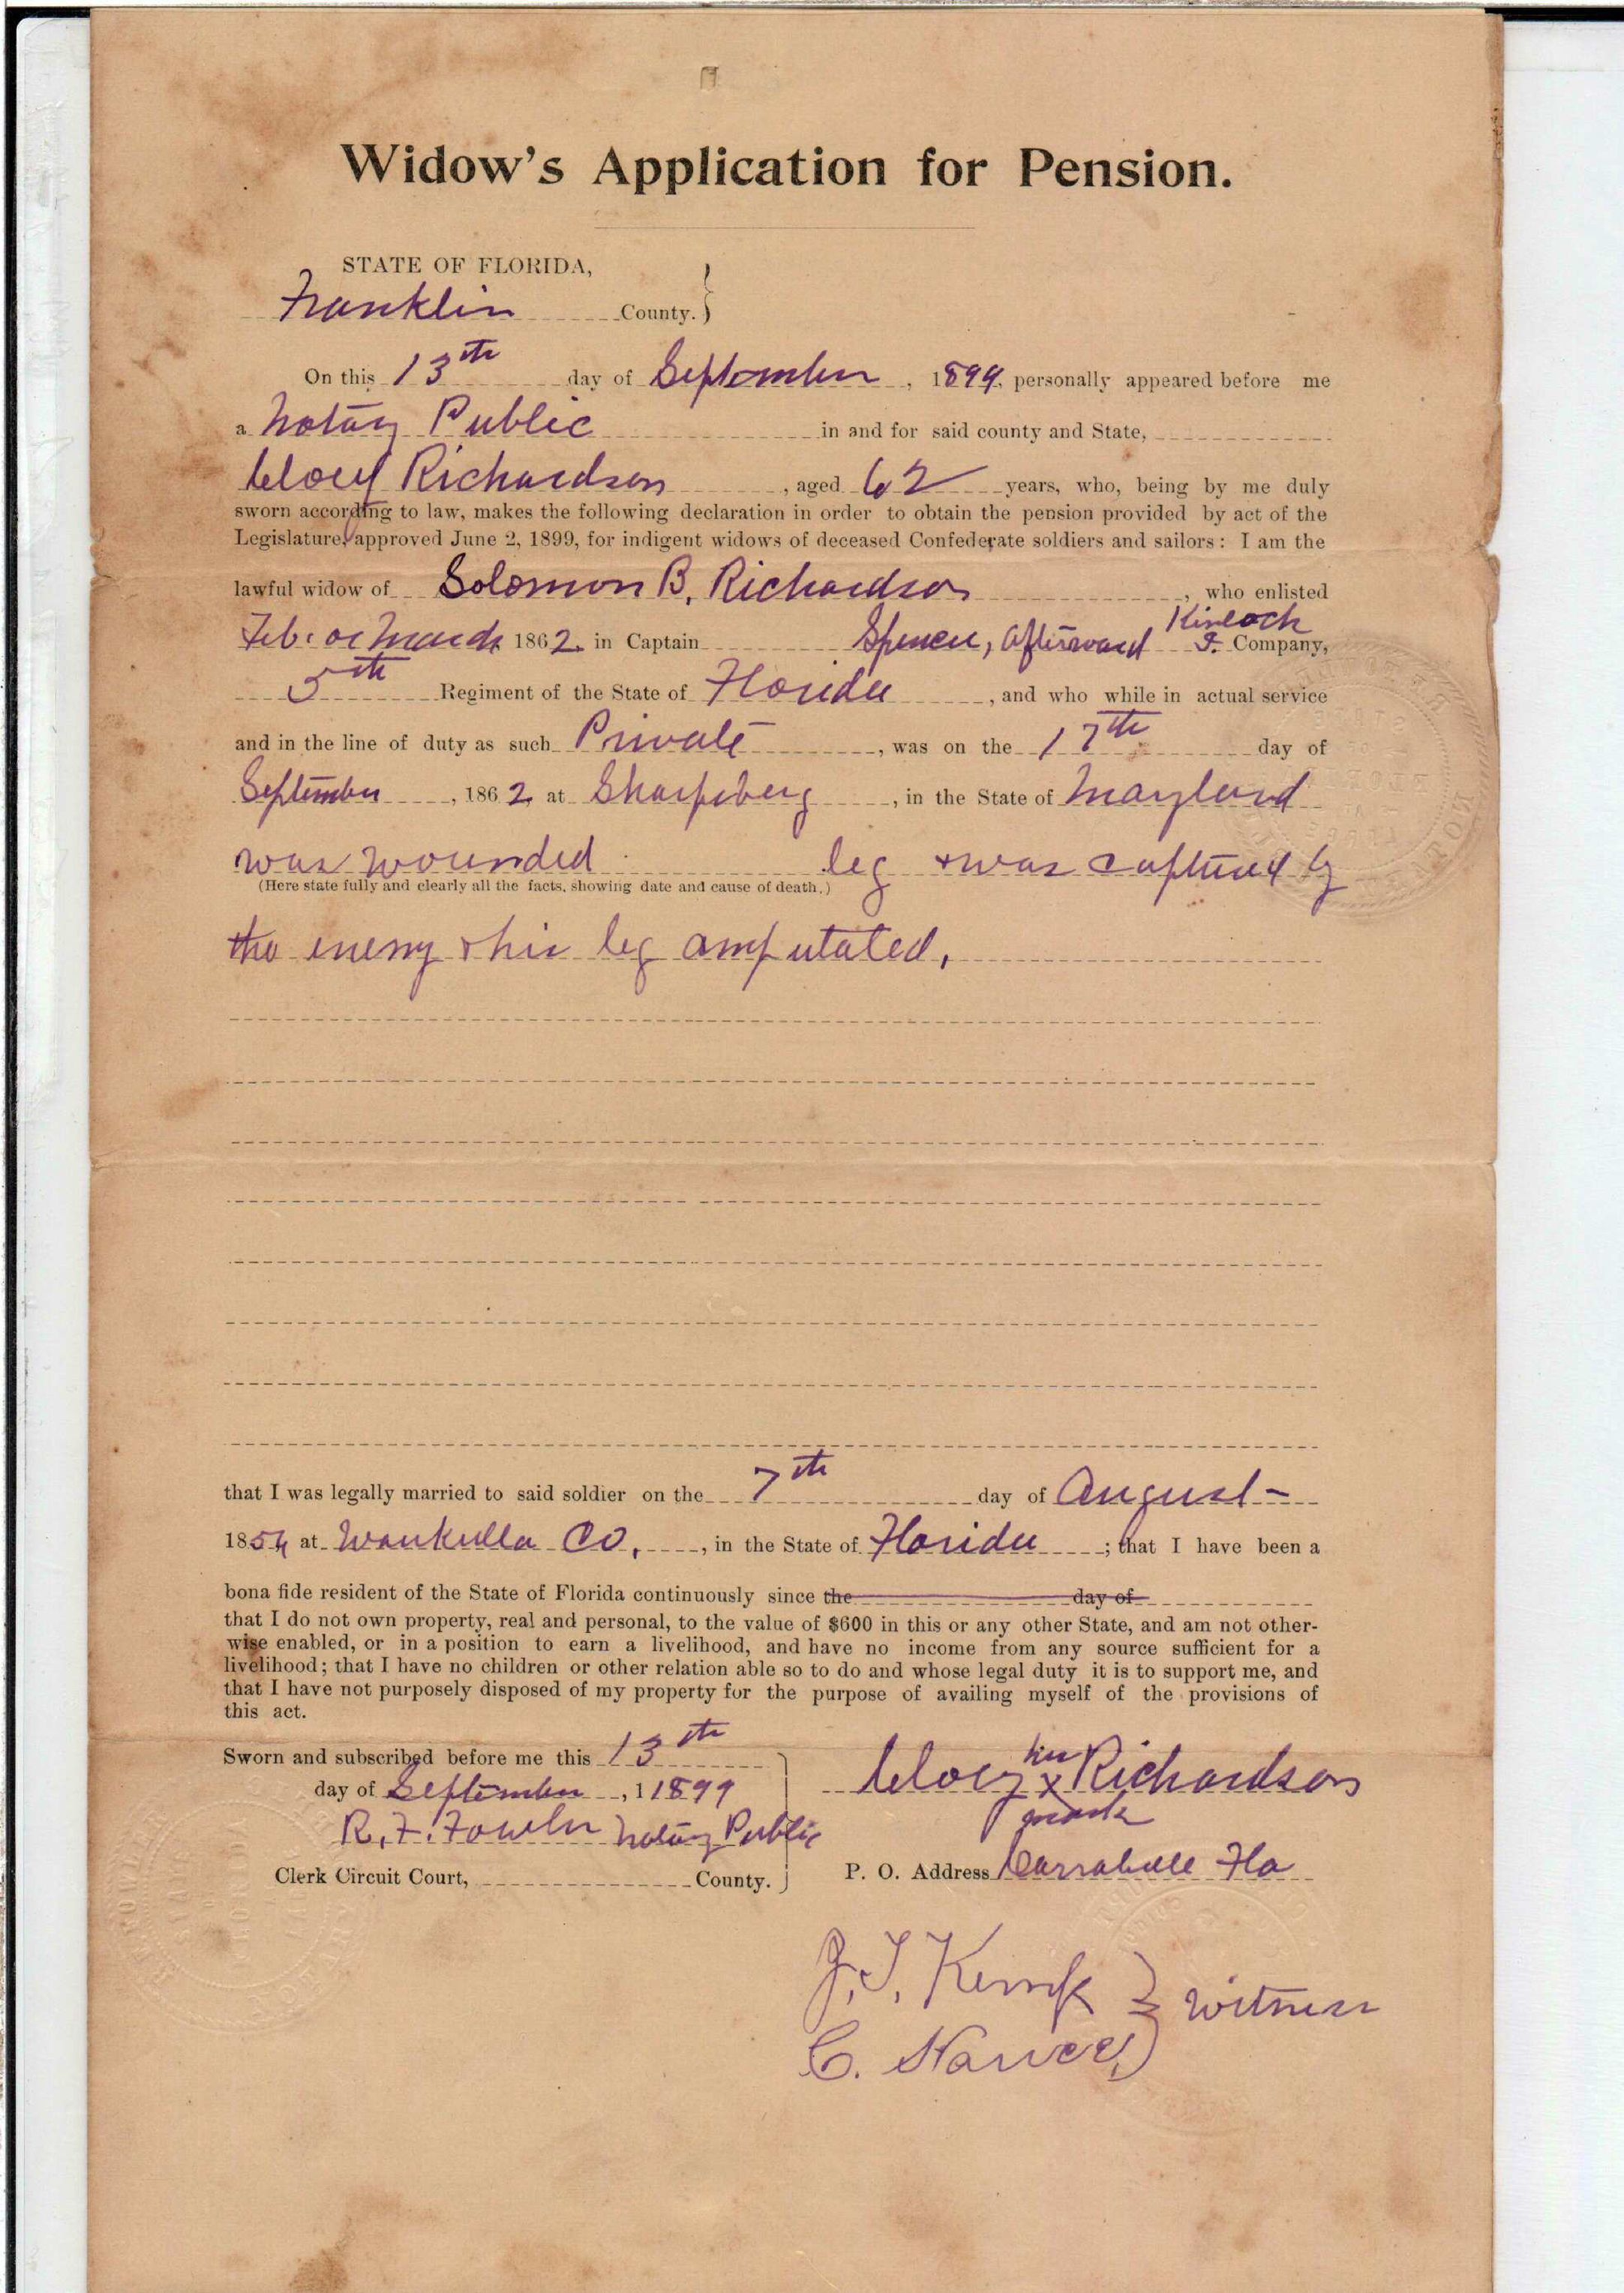 Widow's Application for Pension.
STATE OF FLORIDA,
Franklin County.
On this 13th day of September, 1899, personally appeared before me
a Notary Public in and for said county and State,
Clocy Richardson, aged 62 years, who, being by me duly
sworn according to law, makes the following declaration in order to obtain the pension provided by act of the
Legislature, approved June 2, 1899, for indigent widows of deceased Confederate soldiers and sailors: I am the
lawful widow of Solomon B. Richardson, who enlisted
Feb. or March 1862 in Captain Spencer, afterward Kinloch Company,
5th Regiment of the State of Florida, and who while in actual service
and in the line of duty as such Private, was on the 17th day of
September, 1862 at Sharpsberg, in the State of Maryland
was wounded leg & was captured by
(Here state fully and clearly all the facts, showing date and cause of death.)
the enemy & his leg amputated.
that I was legally married to said soldier on the 7th day of August
1854 at Waukulla Co., in the State of Florida; that I have been a
bona fide resident of the State of Florida continuously since the day of
that I do not own property, real and personal, to the value of $600 in this or any other State, and am not other-
wise enabled, or in a position to earn a livelihood, and have no income from any source sufficient for a
livelihood; that I have no children or other relation able so to do and whose legal duty it is to support me, and
that I have not purposely disposed of my property for the purpose of availing myself of the provisions of
this act.
Sworn and subscribed before me this 13th
day of September, 1 1899
R. F. Fowler Notary Public
Clerk Circuit Court, County.
Clocy her x mark Richardson
P. O. Address Carrabelle Fla
J. T. Kemp
witness
C.